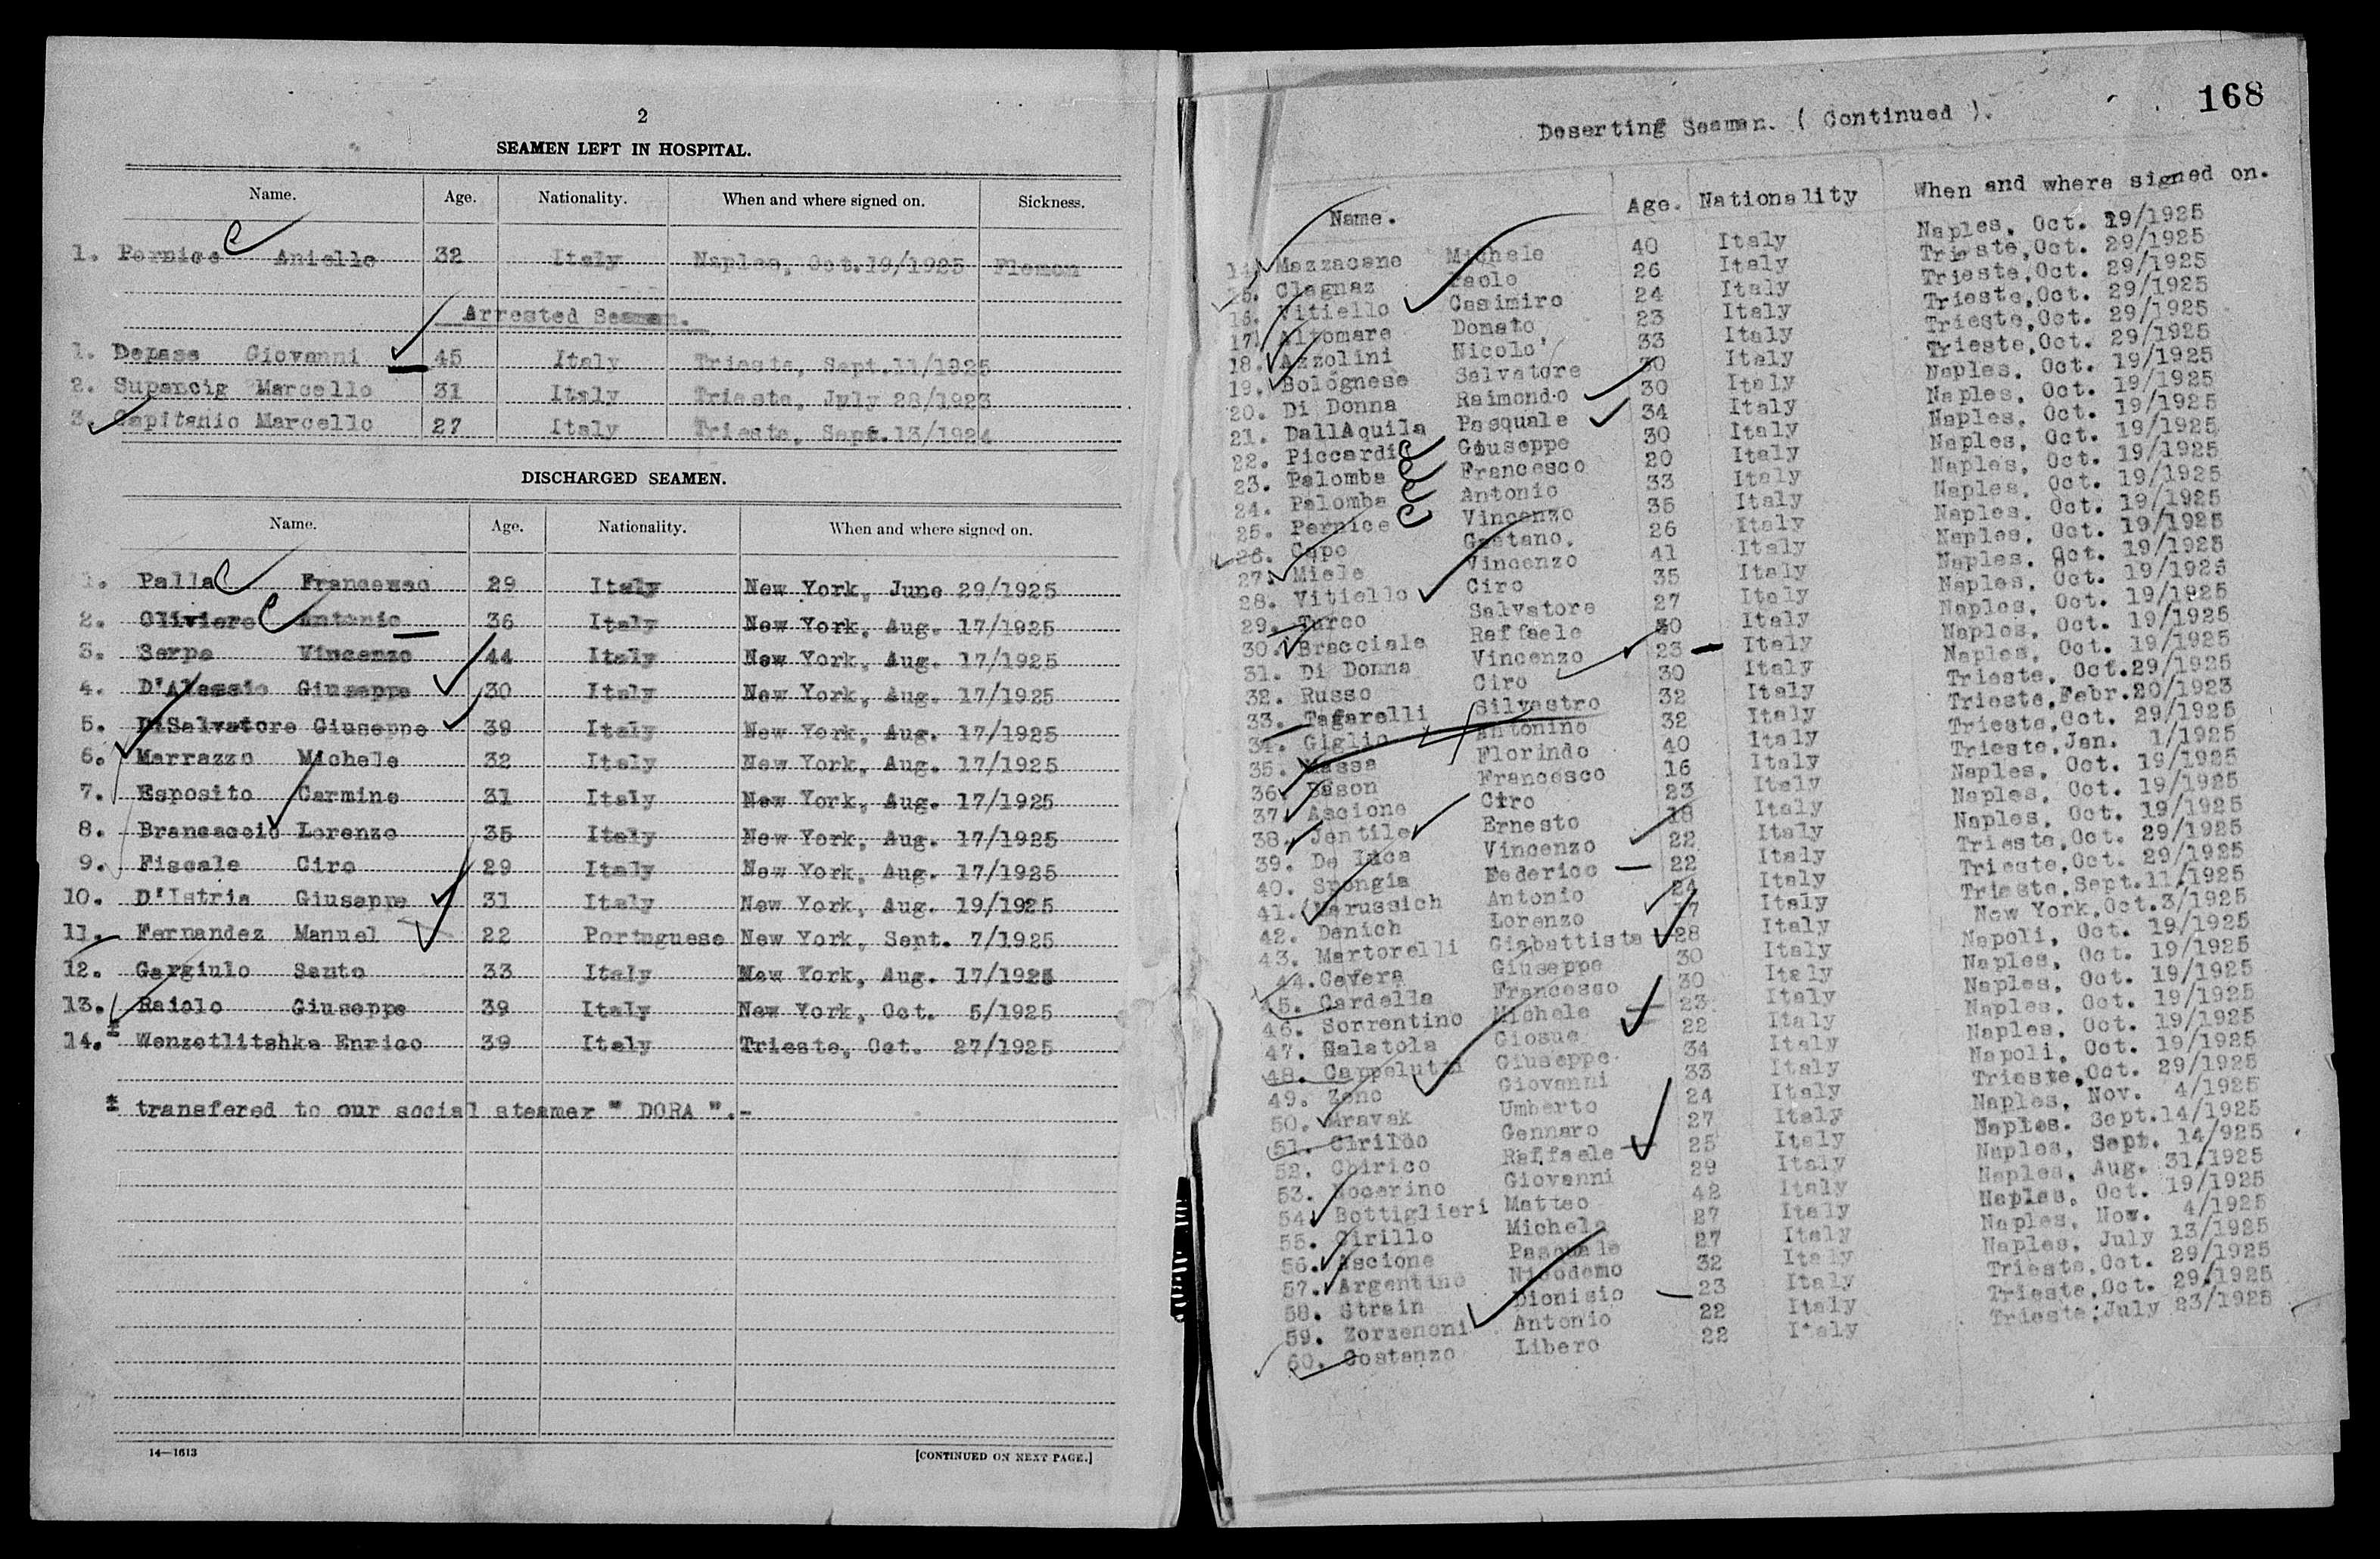 2
SEAMEN LEFT IN HOSPITAL.
Name. Age. Nationality. When and where signed on. Sickness.
1. Pernice Aniello 32 Italy Naples, Oct.19/1925 Flemon
Arrested Seaman.
1. Depase Giovanni 45 Italy Trieste, Sept.11/1925
2. Supancig Marcello 31 Italy Trieste, July 28/1923
3. Capitanio Marcello 27 Italy Trieste, Sept.13/1924
DISCHARGED SEAMEN.
Name. Age. Nationality. When and where signed on.
1. Palla Francesco 29 Italy New York, June 29/1925
2. Oliviero Antonio 36 Italy New York, Aug. 17/1925
3. Serpe Vincenzo 44 Italy New York, Aug. 17/1925
4. D'Alessio Giuseppe 30 Italy New York, Aug. 17/1925
5. DiSalvatore Giuseppe 39 Italy New York, Aug. 17/1925
6. Marrazzo Michele 32 Italy New York, Aug. 17/1925
7. Esposito Carmine 31 Italy New York, Aug. 17/1925
8. Brancaccio Lorenzo 35 Italy New York, Aug. 17/1925
9. Fiscale Ciro 29 Italy New York, Aug. 17/1925
10. D'Istria Giuseppe 31 Italy New York, Aug. 19/1925
11. Fernandez Manuel 22 Portuguese New York, Sept. 7/1925
12. Gargiulo Santo 33 Italy New York, Aug. 17/1925
13. Raiolo Giuseppe 39 Italy New York, Oct. 5/1925
14. Wenzetlitshke Enrico 39 Italy Trieste, Oct. 27/1925
transfered to our social steamer " DORA ".-
14—1613
[CONTINUED ON NEXT PAGE.]
168
Deserting Seaman. ( Continued ).
Name. Age. Nationality When and where signed on.
14. Mazzacano Michele 40 Italy Naples, Oct. 19/1925
15. Clagnaz Paolo 26 Italy Trieste,Oct. 29/1925
16. Vitiello Casimiro 24 Italy Trieste,Oct. 29/1925
17. Altomare Donato 23 Italy Trieste,Oct. 29/1925
18. Azzolini Nicolo' 33 Italy Trieste,Oct. 29/1925
19. Bolognese Salvatore 30 Italy Trieste,Oct. 29/1925
20. Di Donna Raimondo 30 Italy Naples, Oct. 19/1925
21. DallAquila Pasquale 34 Italy Naples, Oct. 19/1925
22. Piccardi Giuseppe 30 Italy Naples, Oct. 19/1925
23. Palomba Francesco 20 Italy Naples, Oct. 19/1925
24. Palomba Antonio 33 Italy Naples, Oct. 19/1925
25. Pernice Vincenzo 35 Italy Naples, Oct. 19/1925
26. Capo Gaetano. 26 Italy Naples, Oct. 19/1925
27. Miele Vincenzo 41 Italy Naples, Oct. 19/1925
28. Vitiello Ciro 35 Italy Naples, Oct. 19/1925
29. Turco Salvatore 27 Italy Naples, Oct. 19/1925
30. Bracciale Raffaele 30 Italy Naples, Oct. 19/1925
31. Di Donna Vincenzo 23 Italy Naples, Oct. 19/1925
32. Russo Ciro 30 Italy Naples, Oct. 19/1925
33. Tagarelli Silvestro 32 Italy Trieste, Oct.29/1925
34. Giglio Antonino 32 Italy Trieste,Febr.20/1923
35. Massa Florindo 40 Italy Trieste,Oct. 29/1925
36. Bason Francesco 16 Italy Trieste,Jan. 1/1925
37. Ascione Ciro 23 Italy Naples, Oct. 19/1925
38. Jentile Ernesto 18 Italy Naples, Oct. 19/1925
39. De Luca Vincenzo 22 Italy Naples, Oct. 19/1925
40. Spongia Federico 22 Italy Trieste,Oct. 29/1925
41. Marussich Antonio 24 Italy Trieste,Oct. 29/1925
42. Denich Lorenzo Italy Trieste,Sept.11/1925
43. Martorelli Giabattista 28 Italy New York,Oct.3/1925
44. Cafera Giuseppe 30 Italy Napoli, Oct. 19/1925
45. Cardella Francesco 30 Italy Naples, Oct. 19/1925
46. Sorrentino Michele 23 Italy Naples, Oct. 19/1925
47. Galatola Giosue 22 Italy Naples, Oct. 19/1925
48. Cappelutti Giuseppe 34 Italy Naples, Oct. 19/1925
49. Zeno Giovanni 33 Italy Napoli, Oct. 19/1925
50. Mravak Umberto 24 Italy Trieste,Oct. 29/1925
51. Cirillo Gennaro 27 Italy Naples, Nov. 4/1925
52. Chirico Raffaele 25 Italy Naples. Sept.14/1925
53. Nocerino Giovanni 29 Italy Naples, Sept. 14/925
54. Bottiglieri Matteo 42 Italy Naples, Aug. 31/1925
55. Cirillo Michele 27 Italy Naples, Oct. 19/1925
56. Ascione Pasquale 27 Italy Naples, Nov. 4/1925
57. Argentino Nicodemo 32 Italy Naples, July 13/1925
58. Strain Dionisio 23 Italy Trieste,Oct. 29/1925
59. Zorzenoni Antonio 22 Italy Trieste,Oct. 29/1925
60. Costanzo Libero 22 Italy Trieste;July 23/1925